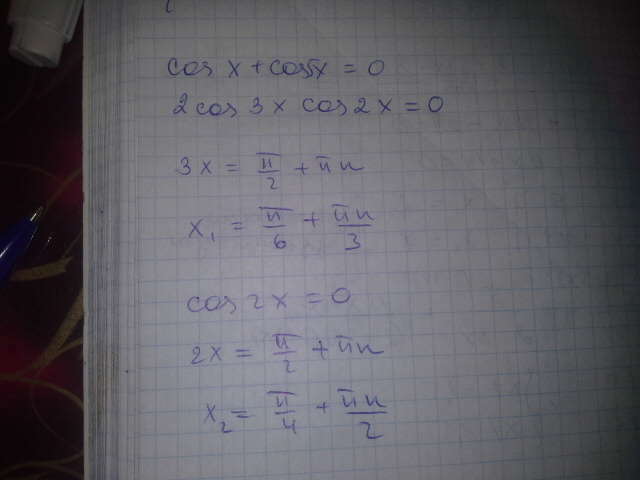 cos x + cos5x = 0
2 cos 3x cos 2x = 0
3x = π/2 + πn
x₁ = π/6 + πn/3
cos 2x = 0
2x = π/2 + πn
x₂ = π/4 + πn/2